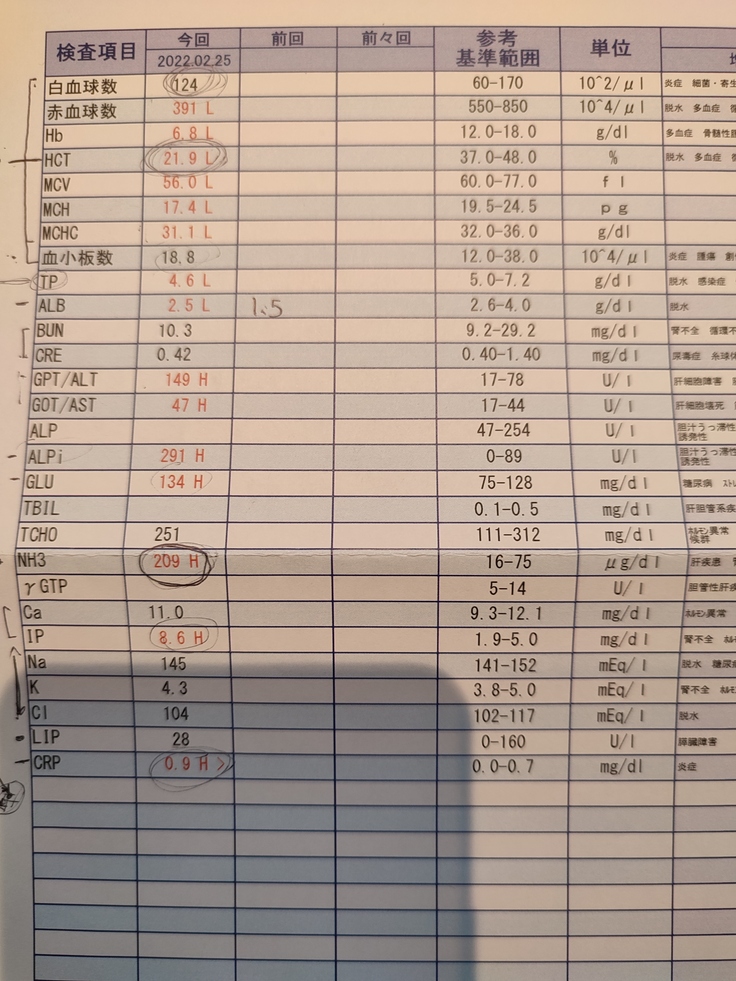 検査項目 今回 前回 前々回 参考基準範囲 単位
2022.02.25
白血球数 124 60-170 10^2/μl 炎症 細菌・寄生
赤血球数 391 L 550-850 10^4/μl 脱水 多血症
Hb 6.8 L 12.0-18.0 g/dl 多血症 骨髄性
HCT 21.9 L 37.0-48.0 % 脱水 多血症
MCV 56.0 L 60.0-77.0 fl
MCH 17.4 L 19.5-24.5 pg
MCHC 31.1 L 32.0-36.0 g/dl
血小板数 18.8 12.0-38.0 10^4/μl 炎症 腫瘍
TP 4.6 L 5.0-7.2 g/dl 脱水 感染症
ALB 2.5 L 1.5 2.6-4.0 g/dl 脱水
BUN 10.3 9.2-29.2 mg/dl 腎不全 循環不
CRE 0.42 0.40-1.40 mg/dl 尿毒症 糸球体
GPT/ALT 149 H 17-78 U/l 肝細胞障害
GOT/AST 47 H 17-44 U/l 肝細胞壊死
ALP 47-254 U/l 胆汁うっ滞性
誘発性
ALPi 291 H 0-89 U/l 胆汁うっ滞性
誘発性
GLU 134 H 75-128 mg/dl 糖尿病 ｽﾄﾚ
TBIL 0.1-0.5 mg/dl 肝胆管系疾
TCHO 251 111-312 mg/dl ﾎﾙﾓﾝ異常
候群
NH3 209 H 16-75 μg/dl 肝疾患
γGTP 5-14 U/l 胆管性肝疾
Ca 11.0 9.3-12.1 mg/dl ﾎﾙﾓﾝ異常
IP 8.6 H 1.9-5.0 mg/dl 腎不全 ﾎﾙﾓ
Na 145 141-152 mEq/l 脱水 糖尿病
K 4.3 3.8-5.0 mEq/l 腎不全 ﾎﾙﾓ
Cl 104 102-117 mEq/l 脱水
LIP 28 0-160 U/l 膵臓障害
CRP 0.9 H 0.0-0.7 mg/dl 炎症